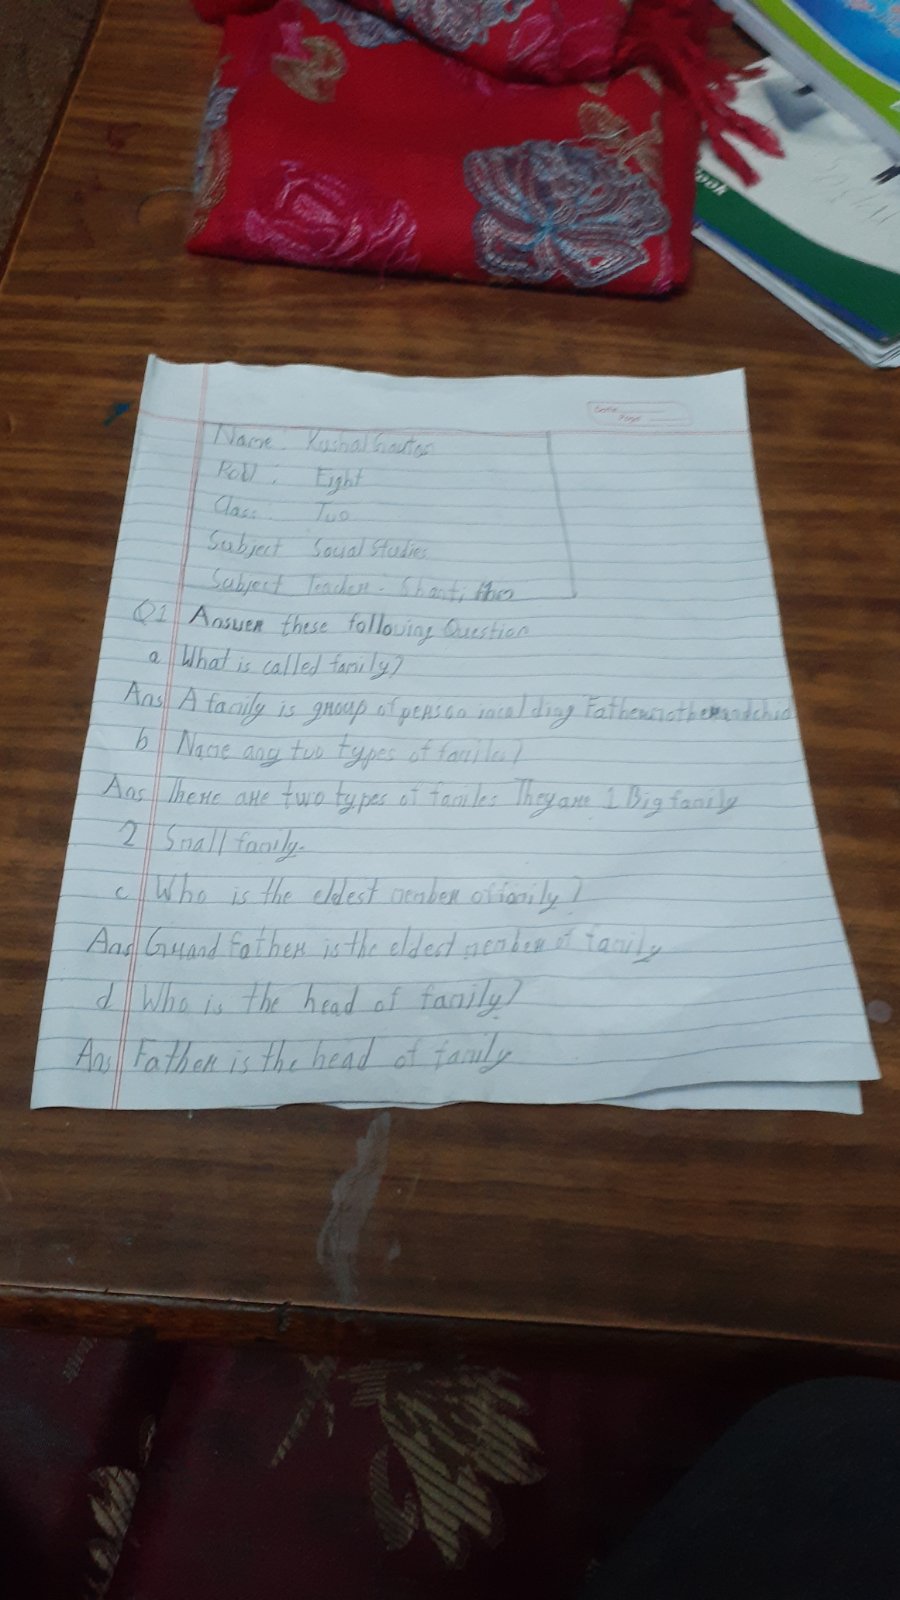 ook
Date
Page
Name : Kushal Gautam
Roll : Eight
Class : Two
Subject Social Studies
Subject Teacher - Shanti
Q1 Answer these following Question
a What is called family?
Ans A family is group of person incalding Father mother and child
b Name any two types of familes?
Ans There are two types of familes They are 1 Big family
2 Small family.
c Who is the eldest member of family?
Ans Grand Father is the eldest member of family
d Who is the head of family?
Ans Father is the head of family